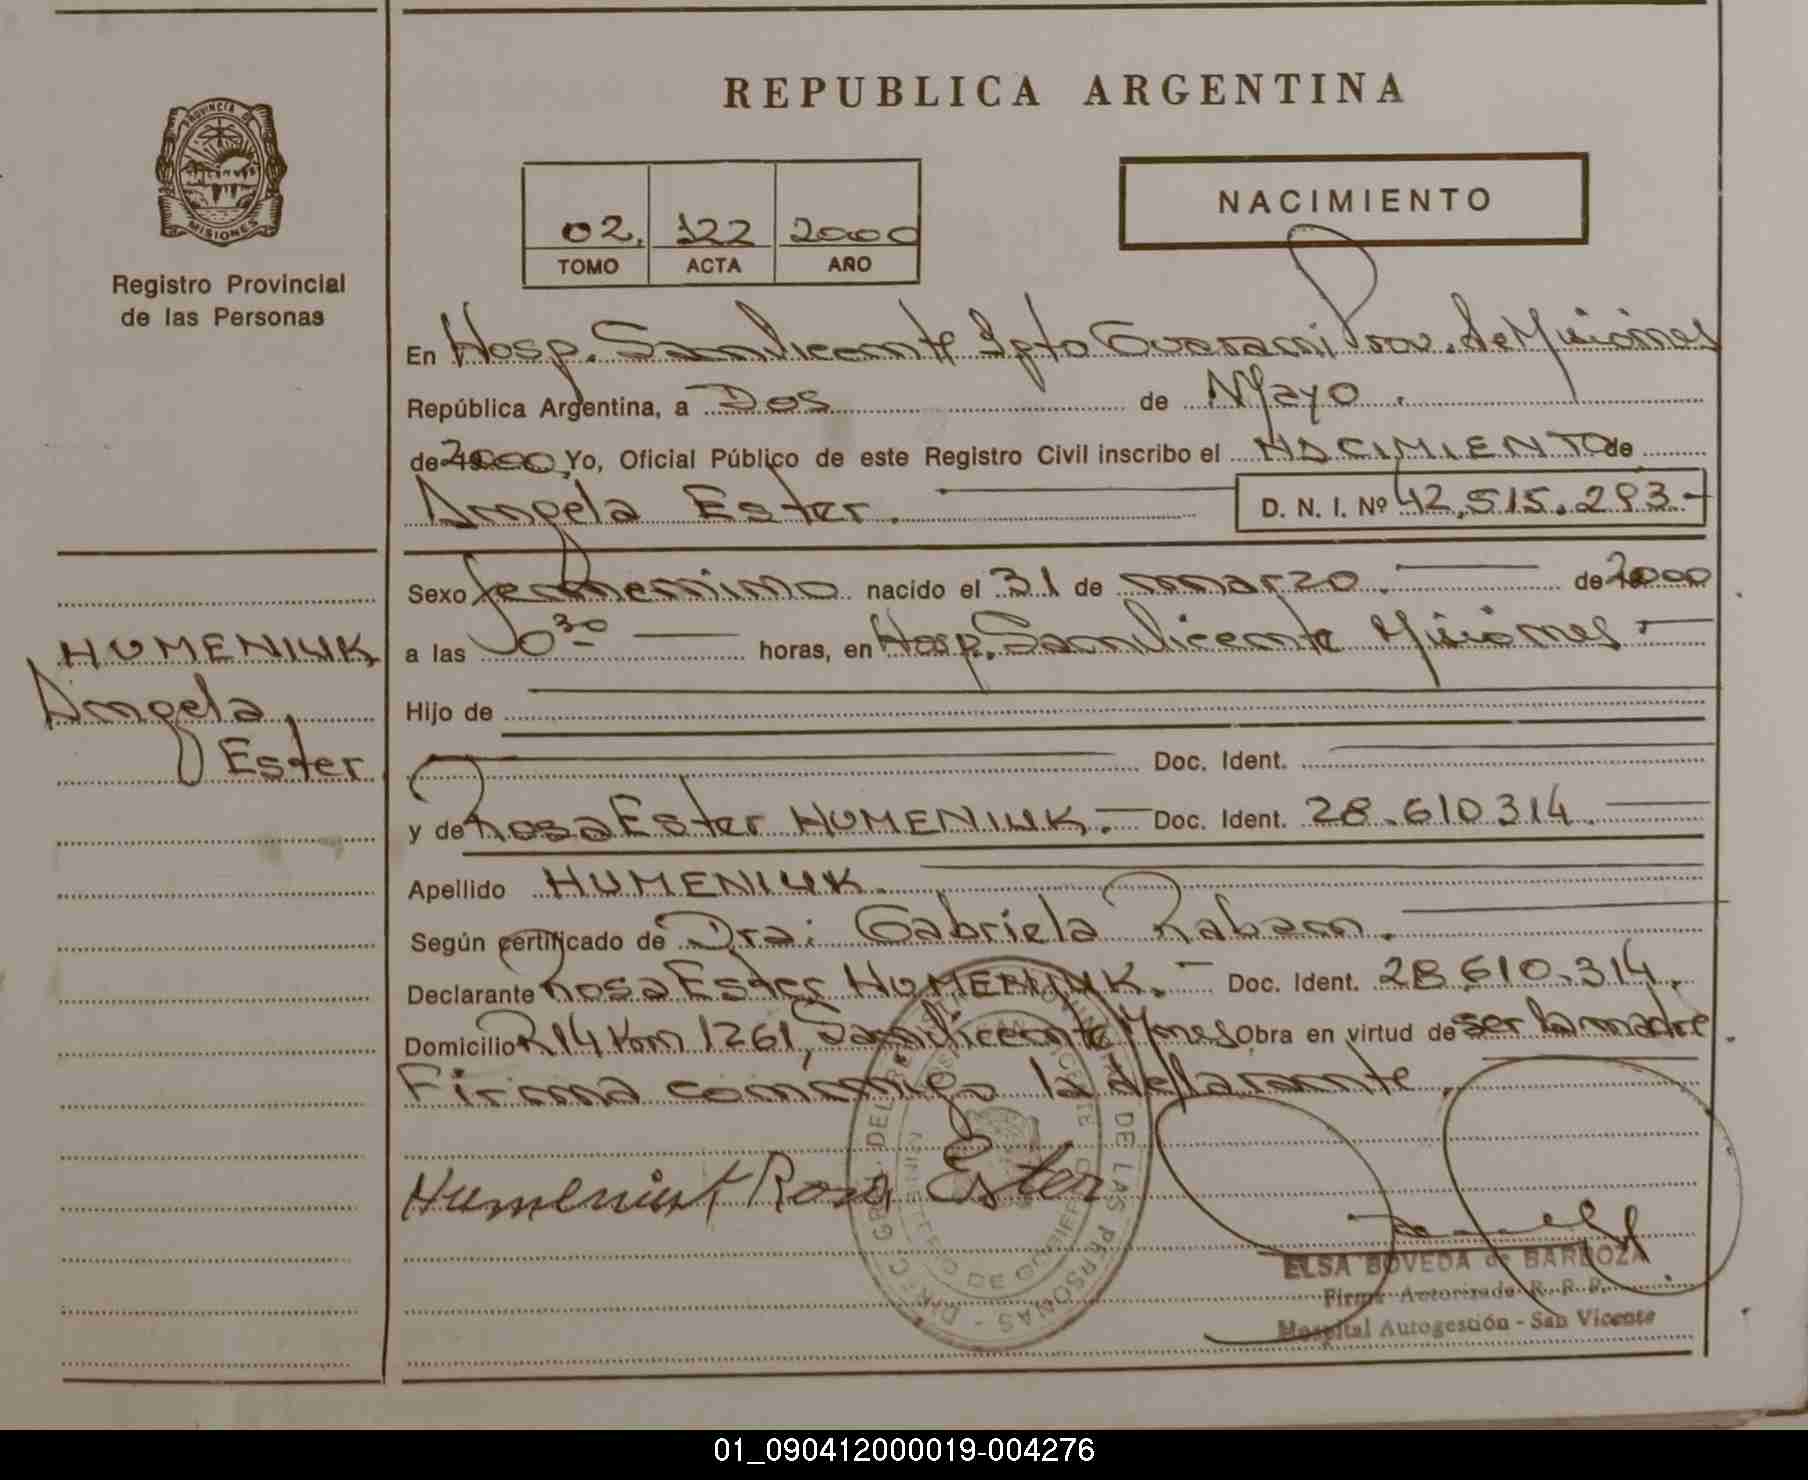 REPUBLICA ARGENTINA
PROVINCIA DE
MISIONES
Registro Provincial
de las Personas
02. 122 2000
TOMO ACTA AÑO
NACIMIENTO
En Hosp. San Vicente Dpto Guarani Prov. de Misiones
República Argentina, a Dos de Mayo.
de 2000 Yo, Oficial Público de este Registro Civil inscribo el NACIMIENTO de
Angela Ester. D. N. I. Nº 42.515.293.-
Sexo femenino nacido el 31 de marzo. de 2000
a las 0 30 horas, en Hosp. San Vicente Misiones.
HUMENIUK
Angela
Ester
Hijo de
Doc. Ident.
y de Rosa Ester HUMENIUK.- Doc. Ident. 28.610.314.
Apellido HUMENIUK.
Según certificado de Dra: Gabriela Raban.
Declarante Rosa Ester HUMENIUK.- Doc. Ident. 28.610.314.
Domicilio R14 Km 1261, San Vicente Mnes Obra en virtud de ser la madre.
Firma conmigo la declarante.
Humeniuk Rosa Ester
DE LAS PERSONAS
ELSA BOVEDA de BARBOZA
Firma Autorizada R. P. P.
Hospital Autogestión - San Vicente
01_090412000019-004276